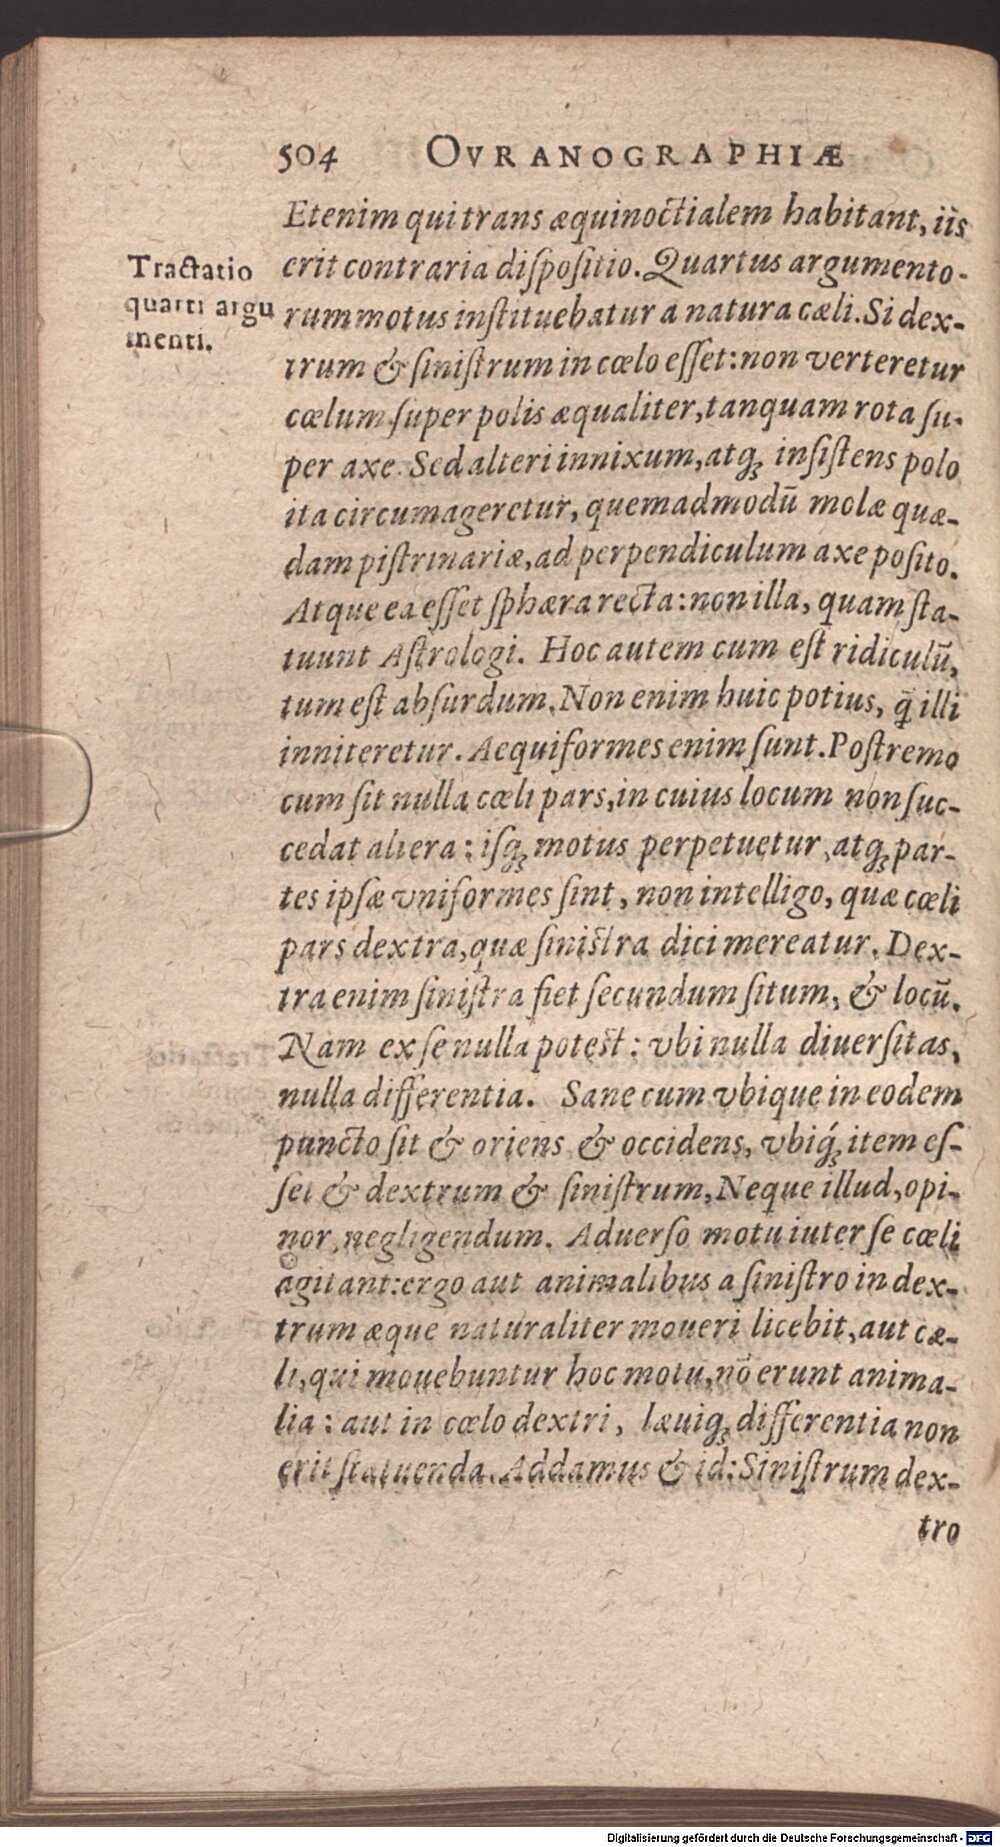 504 OVRANOGRAPHIÆ
Etenim qui trans æquinoctialem habitant, iis
Tractatio
quarti argu
menti.
erit contraria diſpoſitio. Quartus argumento-
rum motus inſtituebatur a natura cæli. Si dex-
trum & ſiniſtrum in cœlo eſſet: non verteretur
cœlum ſuper polis æqualiter, tanquam rota ſu-
per axe. Sed alteri innixum, atq; inſiſtens polo
ita circumageretur, quemadmodū molæ quæ-
dam piſtrinariæ, ad perpendiculum axe poſito.
Atque ea eſſet ſphæra recta: non illa, quam ſta-
tuunt Aſtrologi. Hoc autem cum eſt ridiculū,
tum eſt abſurdum. Non enim huic potius, q̄ illi
inniteretur. Aequiformes enim ſunt. Poſtremo
cum ſit nulla cœli pars, in cuius locum non ſuc-
cedat altera: iſq; motus perpetuetur, atq; par-
tes ipſæ vniformes ſint, non intelligo, quæ cœli
pars dextra, quæ ſiniſtra dici mereatur. Dex-
tra enim ſiniſtra fiet ſecundum ſitum, & locū.
Nam ex ſe nulla poteſt: vbi nulla diuerſitas,
nulla differentia. Sane cum vbique in eodem
puncto ſit & oriens & occidens, vbiq́; item eſ-
ſet & dextrum & ſiniſtrum, Neque illud, opi-
nor, negligendum. Aduerſo motu iuter ſe cœli
agitant: ergo aut animalibus a ſiniſtro in dex-
trum æque naturaliter moueri licebit, aut cæ-
li, qui mouebuntur hoc motu, nō erunt anima-
lia: aut in cœlo dextri, læuiq; differentia non
erit ſtatuenda. Addamus & id: Siniſtrum dex-
tro
Digitalisierung gefördert durch die Deutsche Forschungsgemeinschaft - DFG